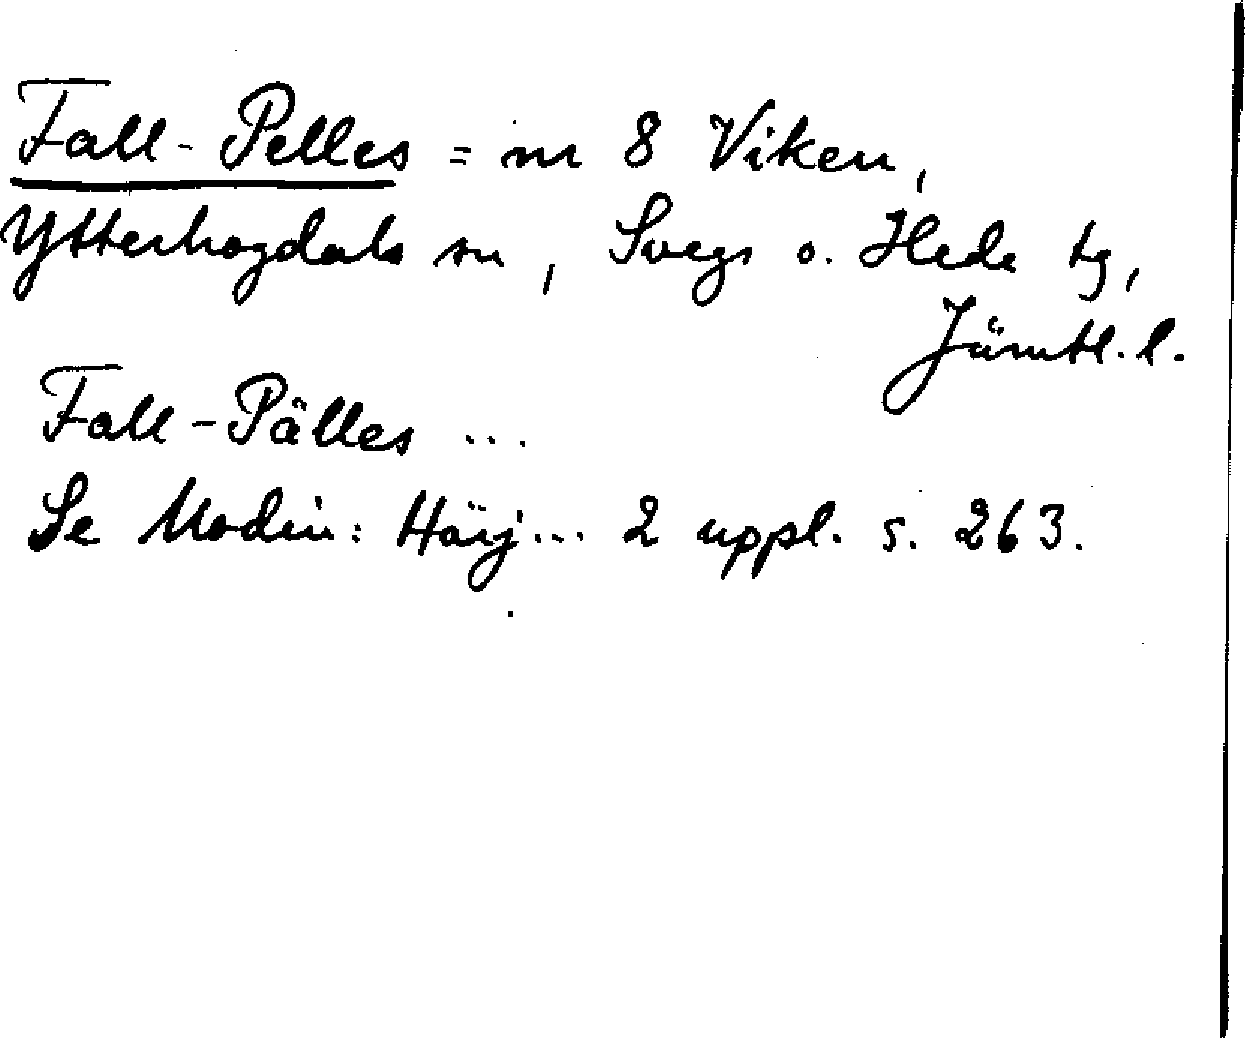 Fall-Pelles = nr 8 Viken,
Ytterhogdals sn, Svegs o. Hede tg,
Jämtl. l.
Fall-Pälles ...
Se Modin: Härj... 2 uppl. s. 263.